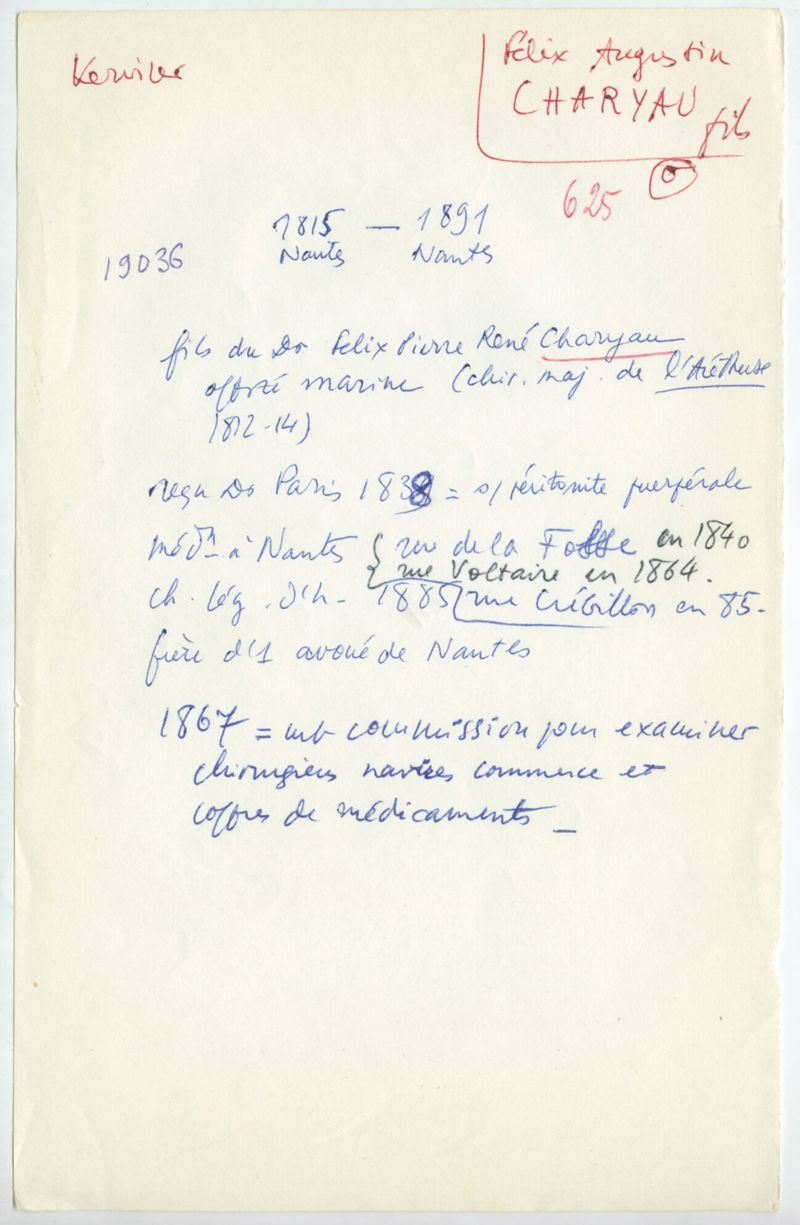 Kerviler
Félix Augustin
CHARYAU
fils
625
1815 — 1891
Nantes Nantes
19036
fils du Dr Felix Pierre René Charyau
marine (chir. maj. de l'Aréthuse
1812-14)
reçu Dr Paris 1838 = s/ péritonite puerpérale
médn à Nantes { rue de la Fosse en 1840
rue Voltaire en 1864.
ch. lég. d'h - 1885 rue Crébillon en 85-
frère d'1 avoué de Nantes
1867 = mb commission pour examiner
chirurgiens navires commerce et
coffres de médicaments _